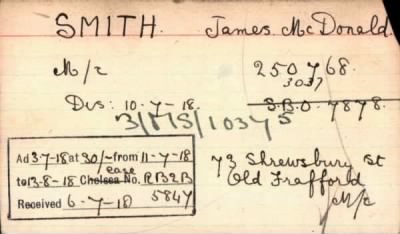 SMITH. James McDonald.
M/c 250768.
3037
Dis: 10-7-18. S.B.O. 7878.
3/MS/10375
Ad 3-7-18 at 30/- from 11-7-18
case
to 13-8-18 Chelsea No. RB2B
Received 6-7-18 5847
73 Shrewsbury St
Old Trafford
M/c